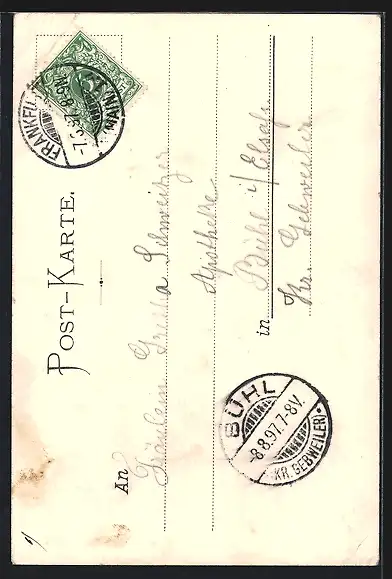 POST-KARTE.
FRANKFU
MAIN
7.8.97.8-9N.
An Fräulein Schweitzer
Apotheke
in Bühl i/ Elsaß
Kr. Gebweiler
BÜHL
-8.8.97.7-8V.
(KR. GEBWEILER)